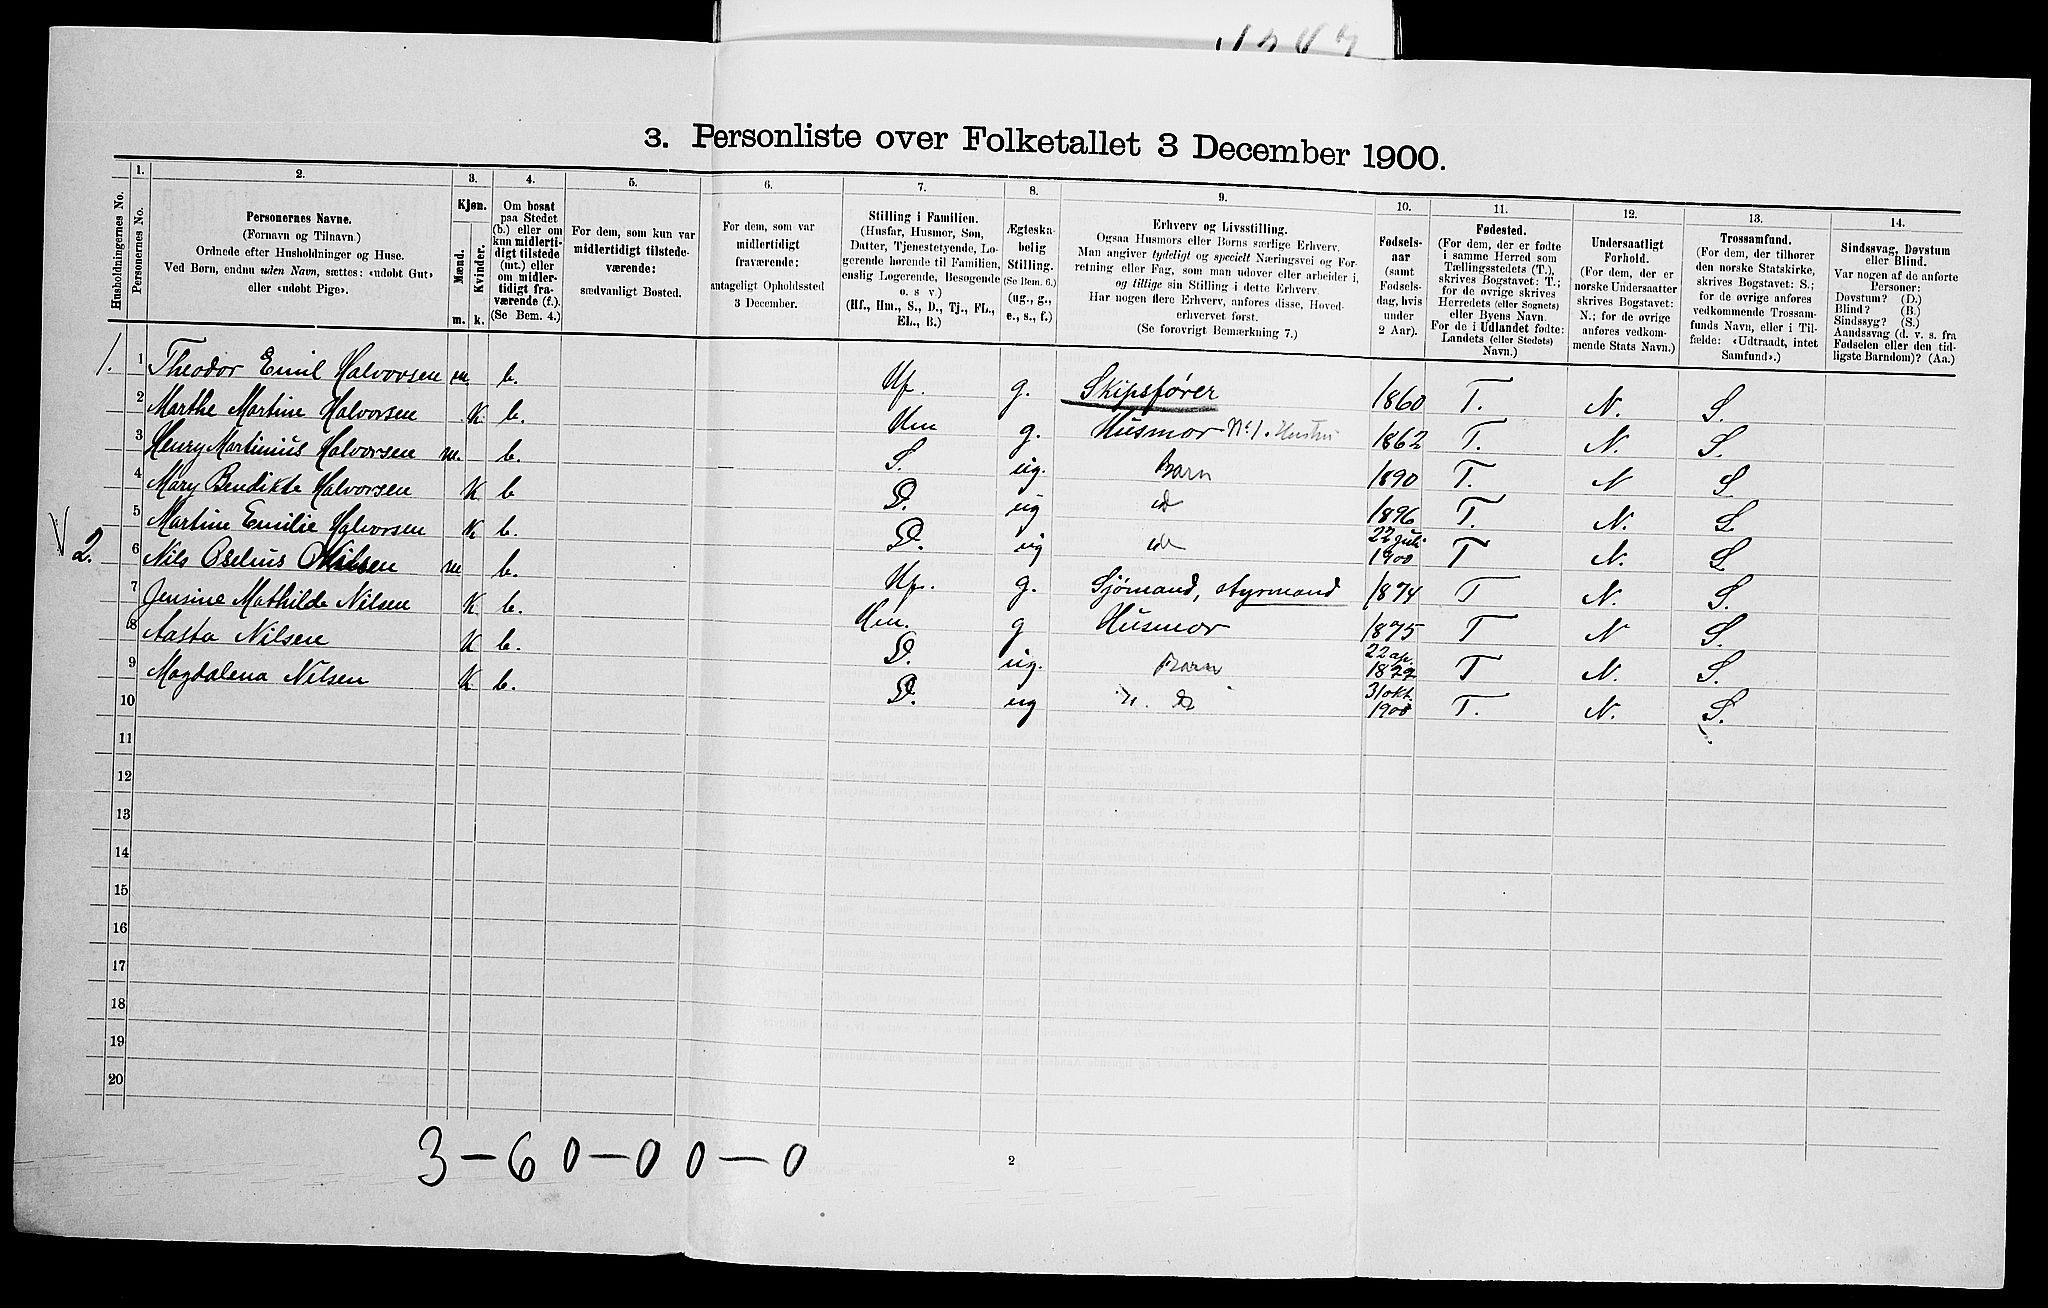 3. Personliste over Folketallet 3 December 1900.
Husholdningernes No.
1.
Personernes No.
2.
Personernes Navne.
(Fornavn og Tilnavn.)
Ordnede efter Husholdninger og Huse.
Ved Børn, endnu uden Navn, sættes: «udøbt Gut»
eller «udøbt Pige».
3.
Kjøn.
Mænd.
Kvinder.
m. k.
4.
Om bosat
paa Stedet
(b.) eller om
kun midlerti-
digt tilstede
(mt.) eller
om midler-
tidigt fra-
værende (f.).
(Se Bem. 4.)
5.
For dem, som kun var
midlertidigt tilstede-
værende:
sædvanligt Bosted.
6.
For dem, som var
midlertidigt
fraværende:
antageligt Opholdssted
3 December.
7.
Stilling i Familien.
(Husfar, Husmor, Søn,
Datter, Tjenestetyende, Lo-
gerende hørende til Familien,
enslig Logerende, Besøgende
o. s v.)
(Hf., Hm., S., D., Tj., FL.,
EL., B.)
8.
Ægteska-
belig
Stilling.
(Se Bem. 6.)
(ug., g.,
e., s., f.)
9.
Erhverv og Livsstilling.
Ogsaa Husmors eller Børns særlige Erhverv.
Man angiver tydeligt og specielt Næringsvei og For-
retning eller Fag, som man udøver eller arbeider i,
og tillige sin Stilling i dette Erhverv.
Har nogen flere Erhverv, anføres disse, Hoved-
erhvervet først.
(Se forøvrigt Bemærkning 7.)
10.
Fødsels-
aar
(samt
Fødsels-
dag, hvis
under
2 Aar).
11.
Fødested.
(For dem, der er fødte
i samme Herred som
Tællingsstedets (T.),
skrives Bogstavet: T.;
for de øvrige skrives
Herredets (eller Sognets)
eller Byens Navn.
For de i Udlandet fødte:
Landets (eller Stedets)
Navn.)
12.
Undersaatligt
Forhold.
(For dem, der er
norske Undersaatter
skrives Bogstavet:
N.; for de øvrige
anføres vedkom-
mende Stats Navn.)
13.
Trossamfund.
(For dem, der tilhører
den norske Statskirke,
skrives Bogstavet: S.;
for de øvrige anføres
vedkommende Trossam-
funds Navn, eller i Til-
fælde: «Udtraadt, intet
Samfund».)
14.
Sindssvag, Døvstum
eller Blind.
Var nogen af de anførte
Personer:
Døvstum? (D.)
Blind? (B.)
Sindssyg? (S.)
Aandssvag (d. v. s. fra
Fødselen eller den tid-
ligste Barndom)? (Aa.)
1. 1 Theodor Emil Halvorsen m. b. Hf. g. Skipsfører 1860 T. N. S.
2 Marthe Martine Halvorsen K b. Hm g. Husmor No 1. Hustru 1862 T. N. S.
3 Henry Martinius Halvorsen m. b. S. ug. Barn 1890 T. N S
4 Mary Bendikte Halvorsen K b D. ug d 1896 T. N. S
5 Martine Emilie Halvorsen K b. D. ug d 22 juli 1900 T N. S
2. 6 Nils Oselius Nilsen m b. Hf. g. Sjømand, styrmand 1874 T N. S.
7 Jensine Mathilde Nilsen K b. Hm. g Husmor 1875 T N S.
8 Aasta Nilsen K b. D. ug. Barn 22 ap. T N. S.
9 Magdalena Nilsen K b. D. ug 31 okt. 1900 T. N. S.
10
11
12
13
14
15
16
17
18
19
20
3-60-00-0
2